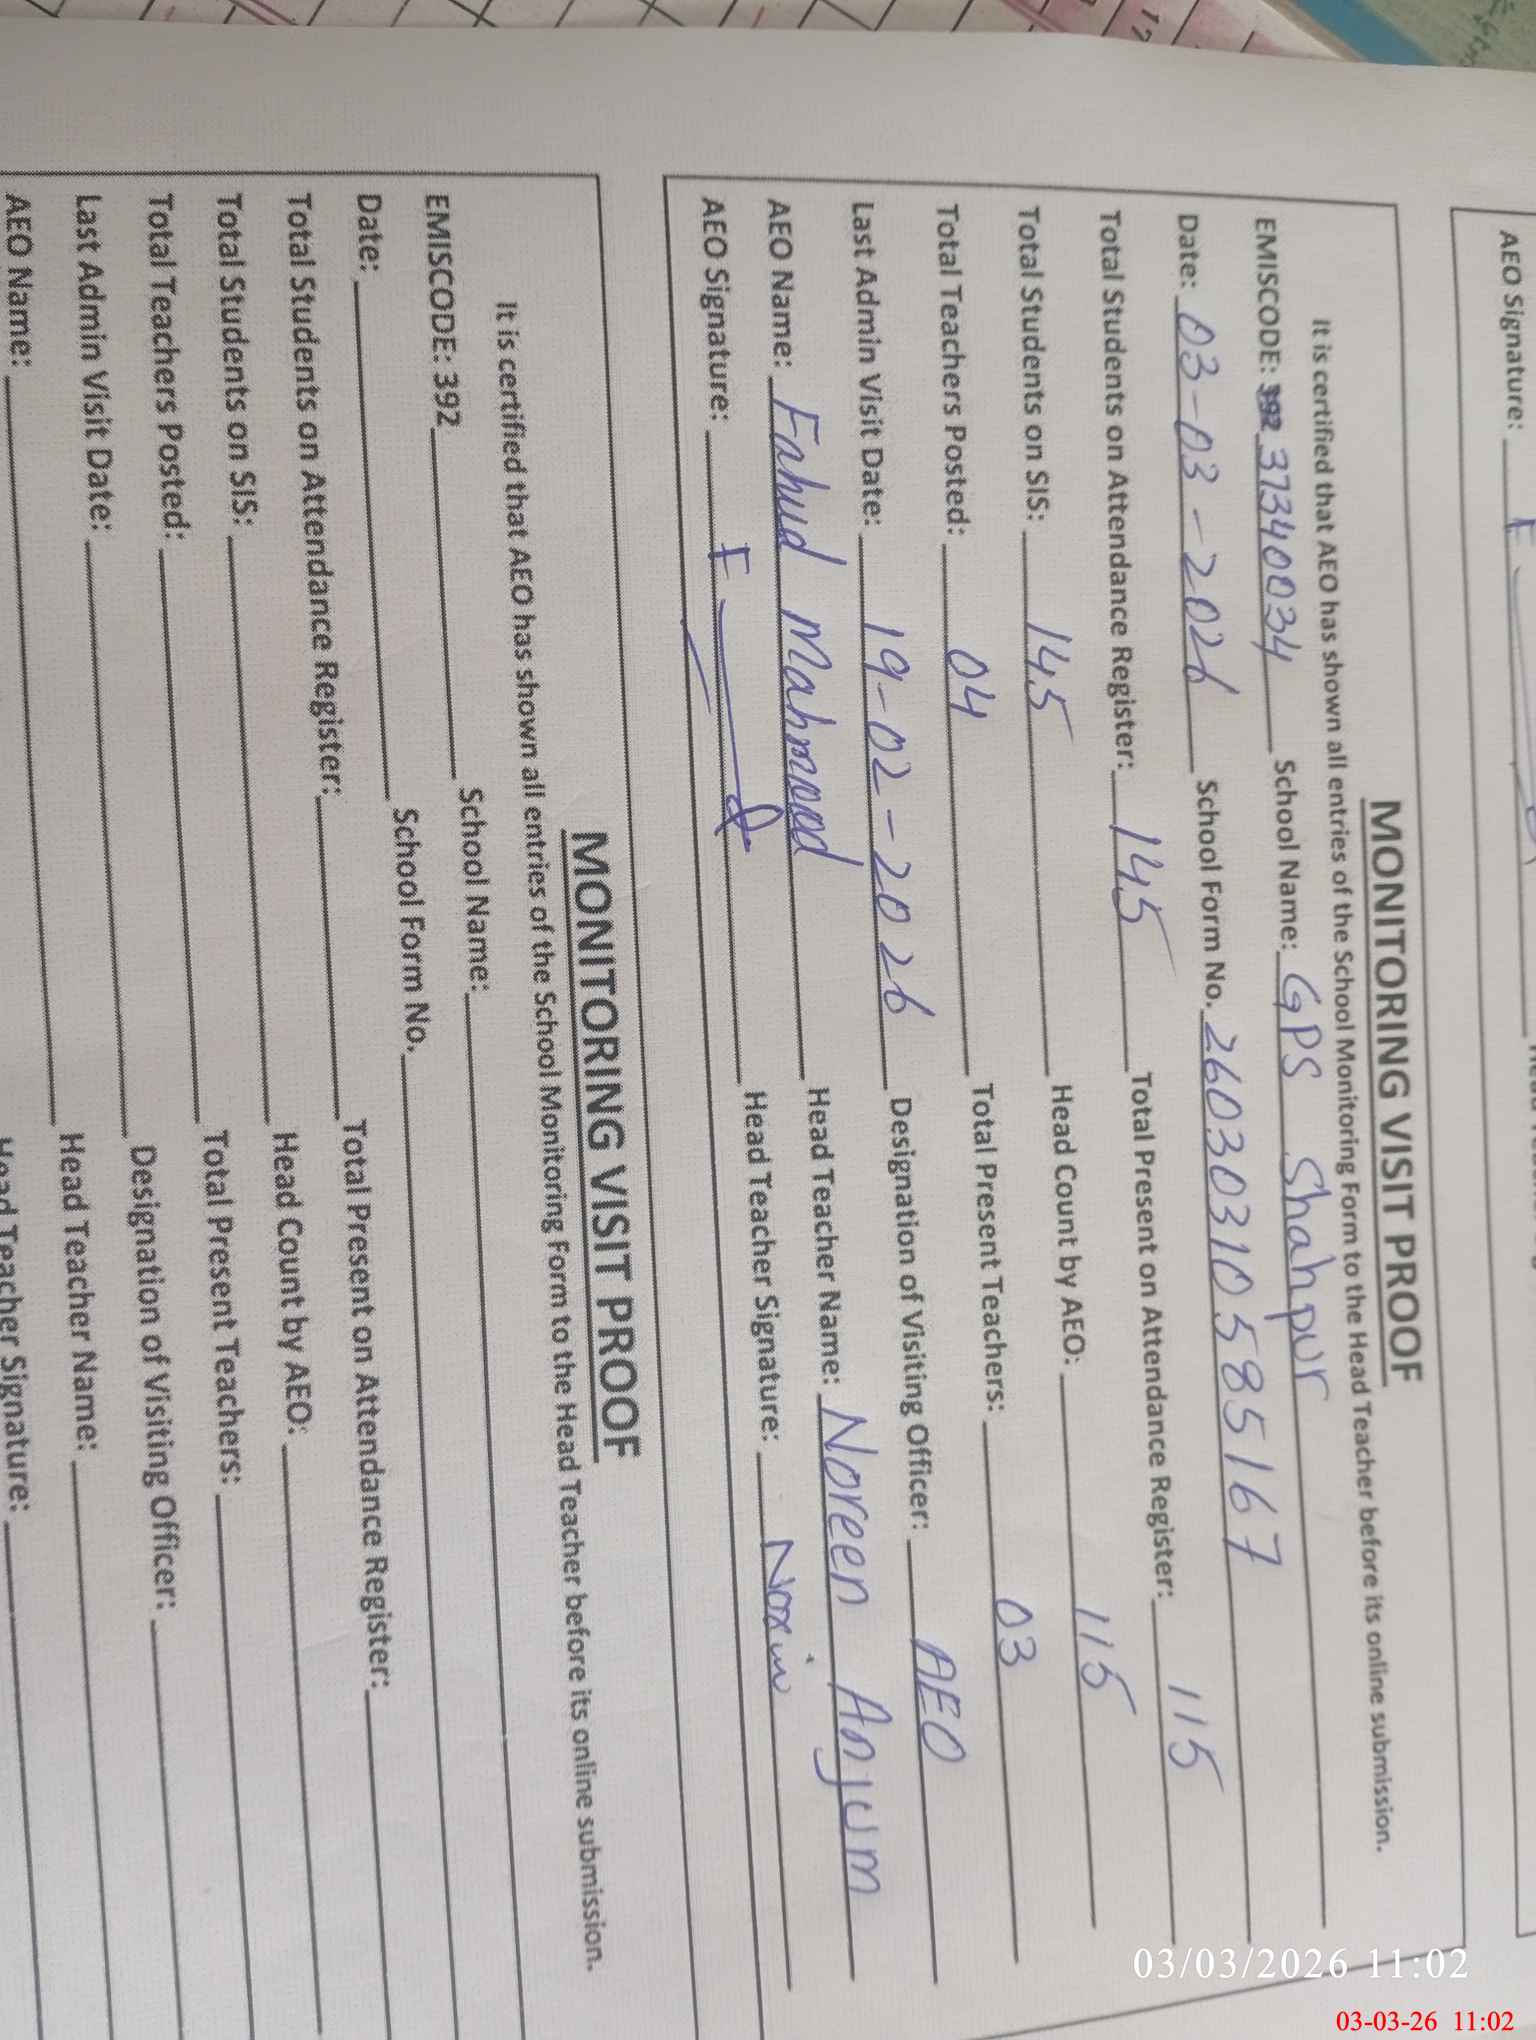 AEO Signature:
MONITORING VISIT PROOF
It is certified that AEO has shown all entries of the School Monitoring Form to the Head Teacher before its online submission.
EMISCODE: 392 37340034 School Name: GPS Shahpur
Date: 03-03-2026 School Form No. 26030310585167
Total Students on Attendance Register: 145 Total Present on Attendance Register: 115
Total Students on SIS: 145 Head Count by AEO: 115
Total Teachers Posted: 04 Total Present Teachers: 03
Last Admin Visit Date: 19-02-2026 Designation of Visiting Officer: AEO
AEO Name: Fahud Mahmood Head Teacher Name: Noreen Anjum
AEO Signature: Head Teacher Signature:
MONITORING VISIT PROOF
It is certified that AEO has shown all entries of the School Monitoring Form to the Head Teacher before its online submission.
EMISCODE: 392 School Name:
Date: School Form No.
Total Students on Attendance Register: Total Present on Attendance Register:
Total Students on SIS: Head Count by AEO:
Total Teachers Posted: Total Present Teachers:
Last Admin Visit Date: Designation of Visiting Officer:
AEO Name: Head Teacher Name:
Head Teacher Signature:
03/03/2026 11:02
03-03-26 11:02